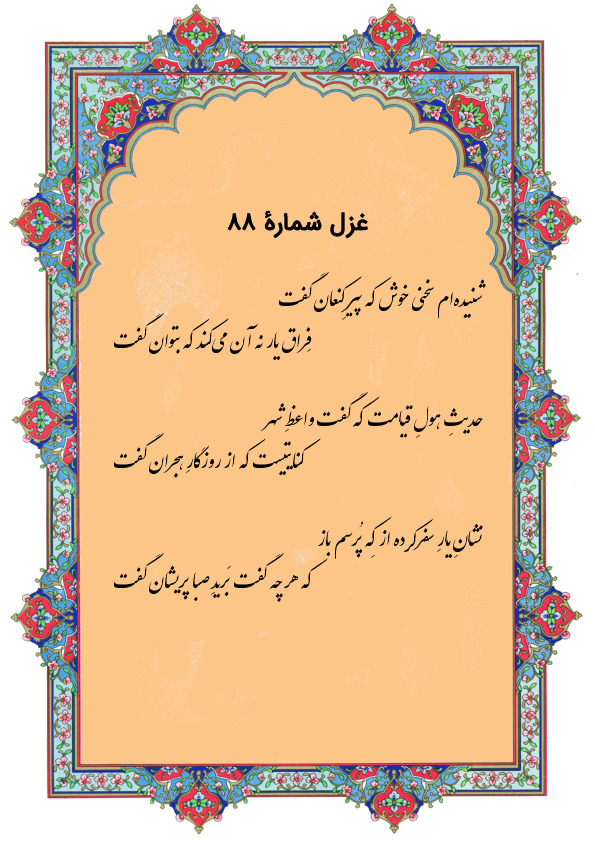 غزل شمارهٔ ۸۸
شنیده‌ام سخنی خوش که پیرِ کنعان گفت
فِراق یار نه آن می‌کند که بتوان گفت
حدیثِ هولِ قیامت که گفت واعظِ شهر
کنایتیست که از روزگارِ هجران گفت
نشانِ یارِ سفرکرده از که پُرسم باز
که هر چه گفت بَریدِ صبا پریشان گفت